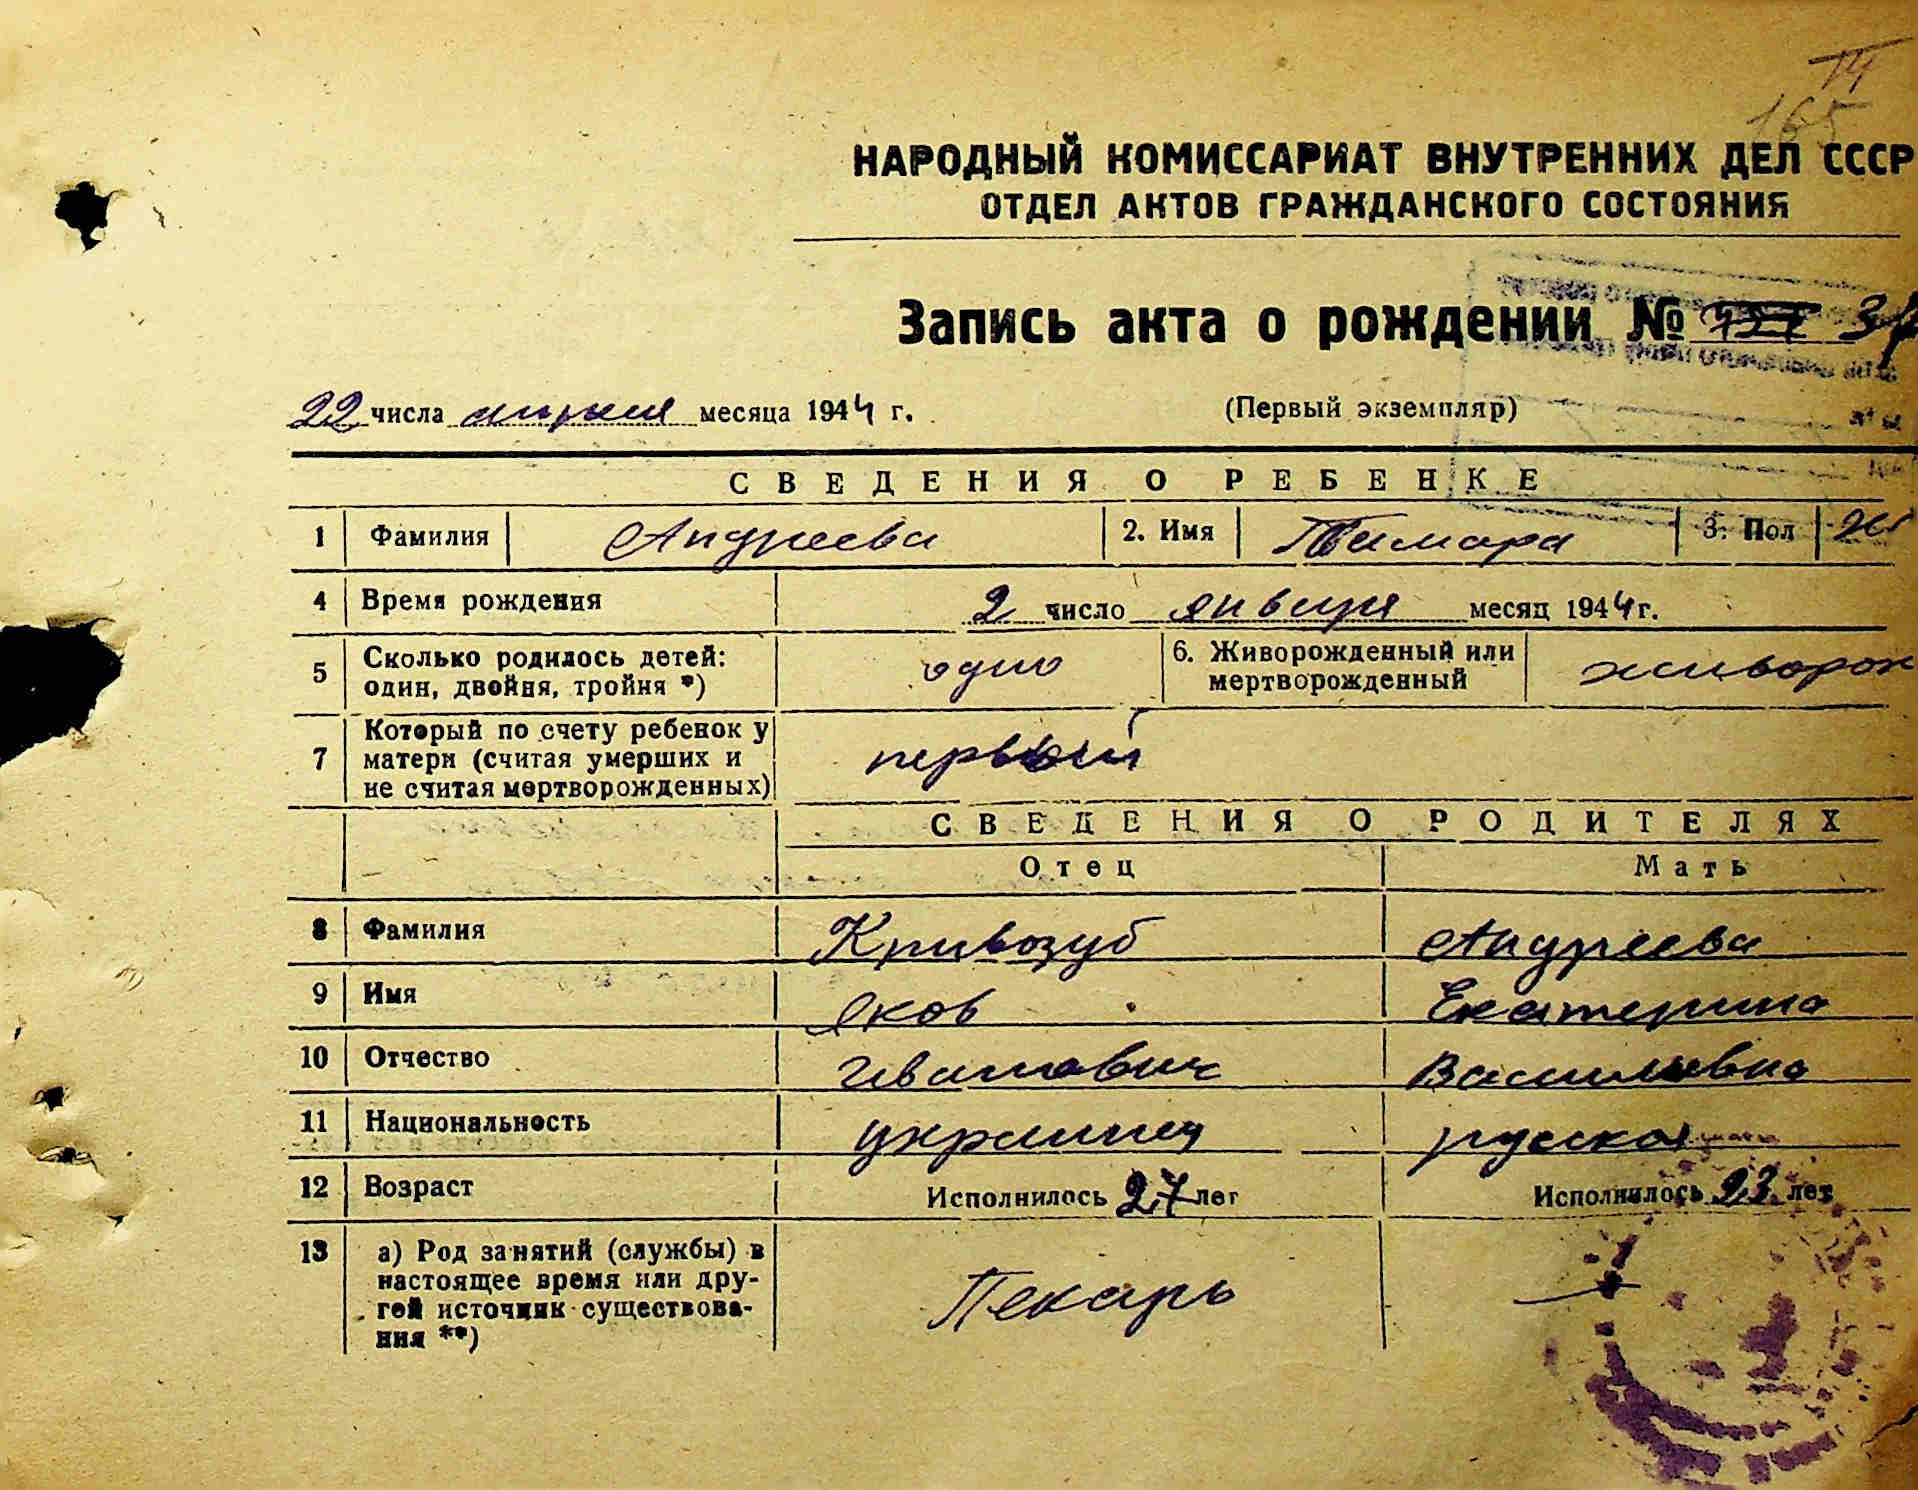 165
НАРОДНЫЙ КОМИССАРИАТ ВНУТРЕННИХ ДЕЛ СССР
ОТДЕЛ АКТОВ ГРАЖДАНСКОГО СОСТОЯНИЯ
Запись акта о рождении №
22 числа апреля месяца 1944 г. (Первый экземпляр)
СВЕДЕНИЯ О РЕБЕНКЕ
1 Фамилия Андреева 2. Имя Тамара 3. Пол ж
4 Время рождения 2 число января месяц 1944 г.
5 Сколько родилось детей: один, двойня, тройня *) одно 6. Живорожденный или мертворожденный живорож
7 Который по счету ребенок у матери (считая умерших и не считая мертворожденных) первый
СВЕДЕНИЯ О РОДИТЕЛЯХ
Отец Мать
8 Фамилия Кривозуб Андреева
9 Имя Яков Екатерина
10 Отчество Иванович Васильевна
11 Национальность украинец русская
12 Возраст Исполнилось 27 лет Исполнилось 23 лет
13 а) Род занятий (службы) в настоящее время или другой источник существования **) Пекарь —